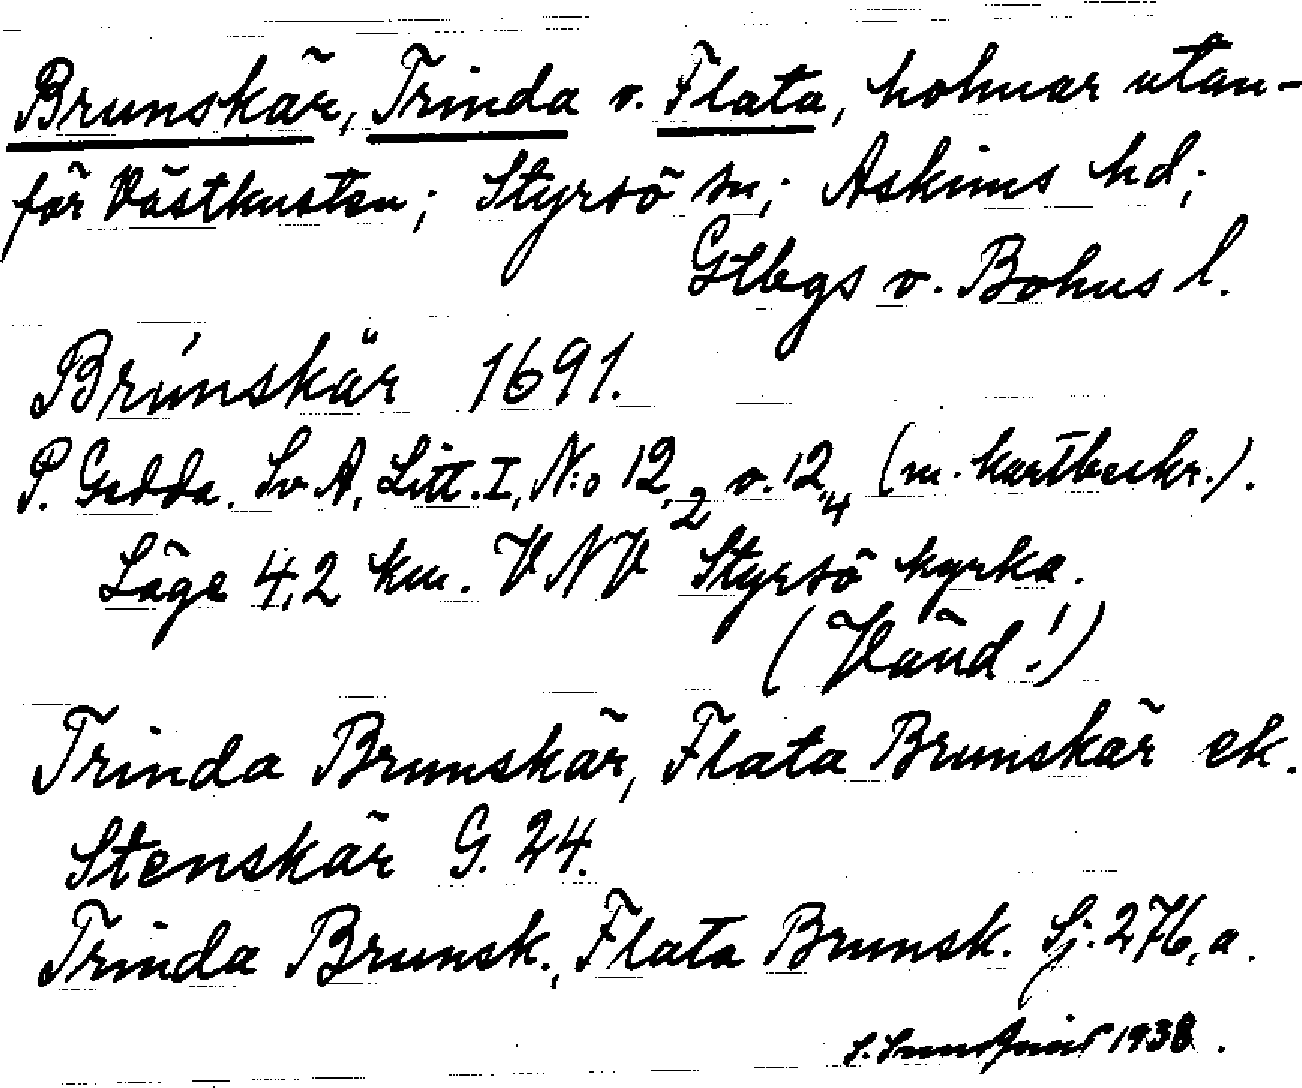 Brunskär, Trinda o. Flata, holmar utan-
för Västkusten; Styrsö sn; Askims hd;
Gtbgs o. Bohus l.
Brúnskär 1691.
P. Gedda. Sv. A, Litt. I, N:o 12,2 o. 12,4 (m. kartbeskr.).
Läge 4,2 km. VNV Styrsö kyrka.
(Vänd!)
Trinda Brunskär, Flata Brunskär ek.
Stenskär G. 24.
Trinda Brunsk., Flata Brunsk. Sj. 276, a.
1938.